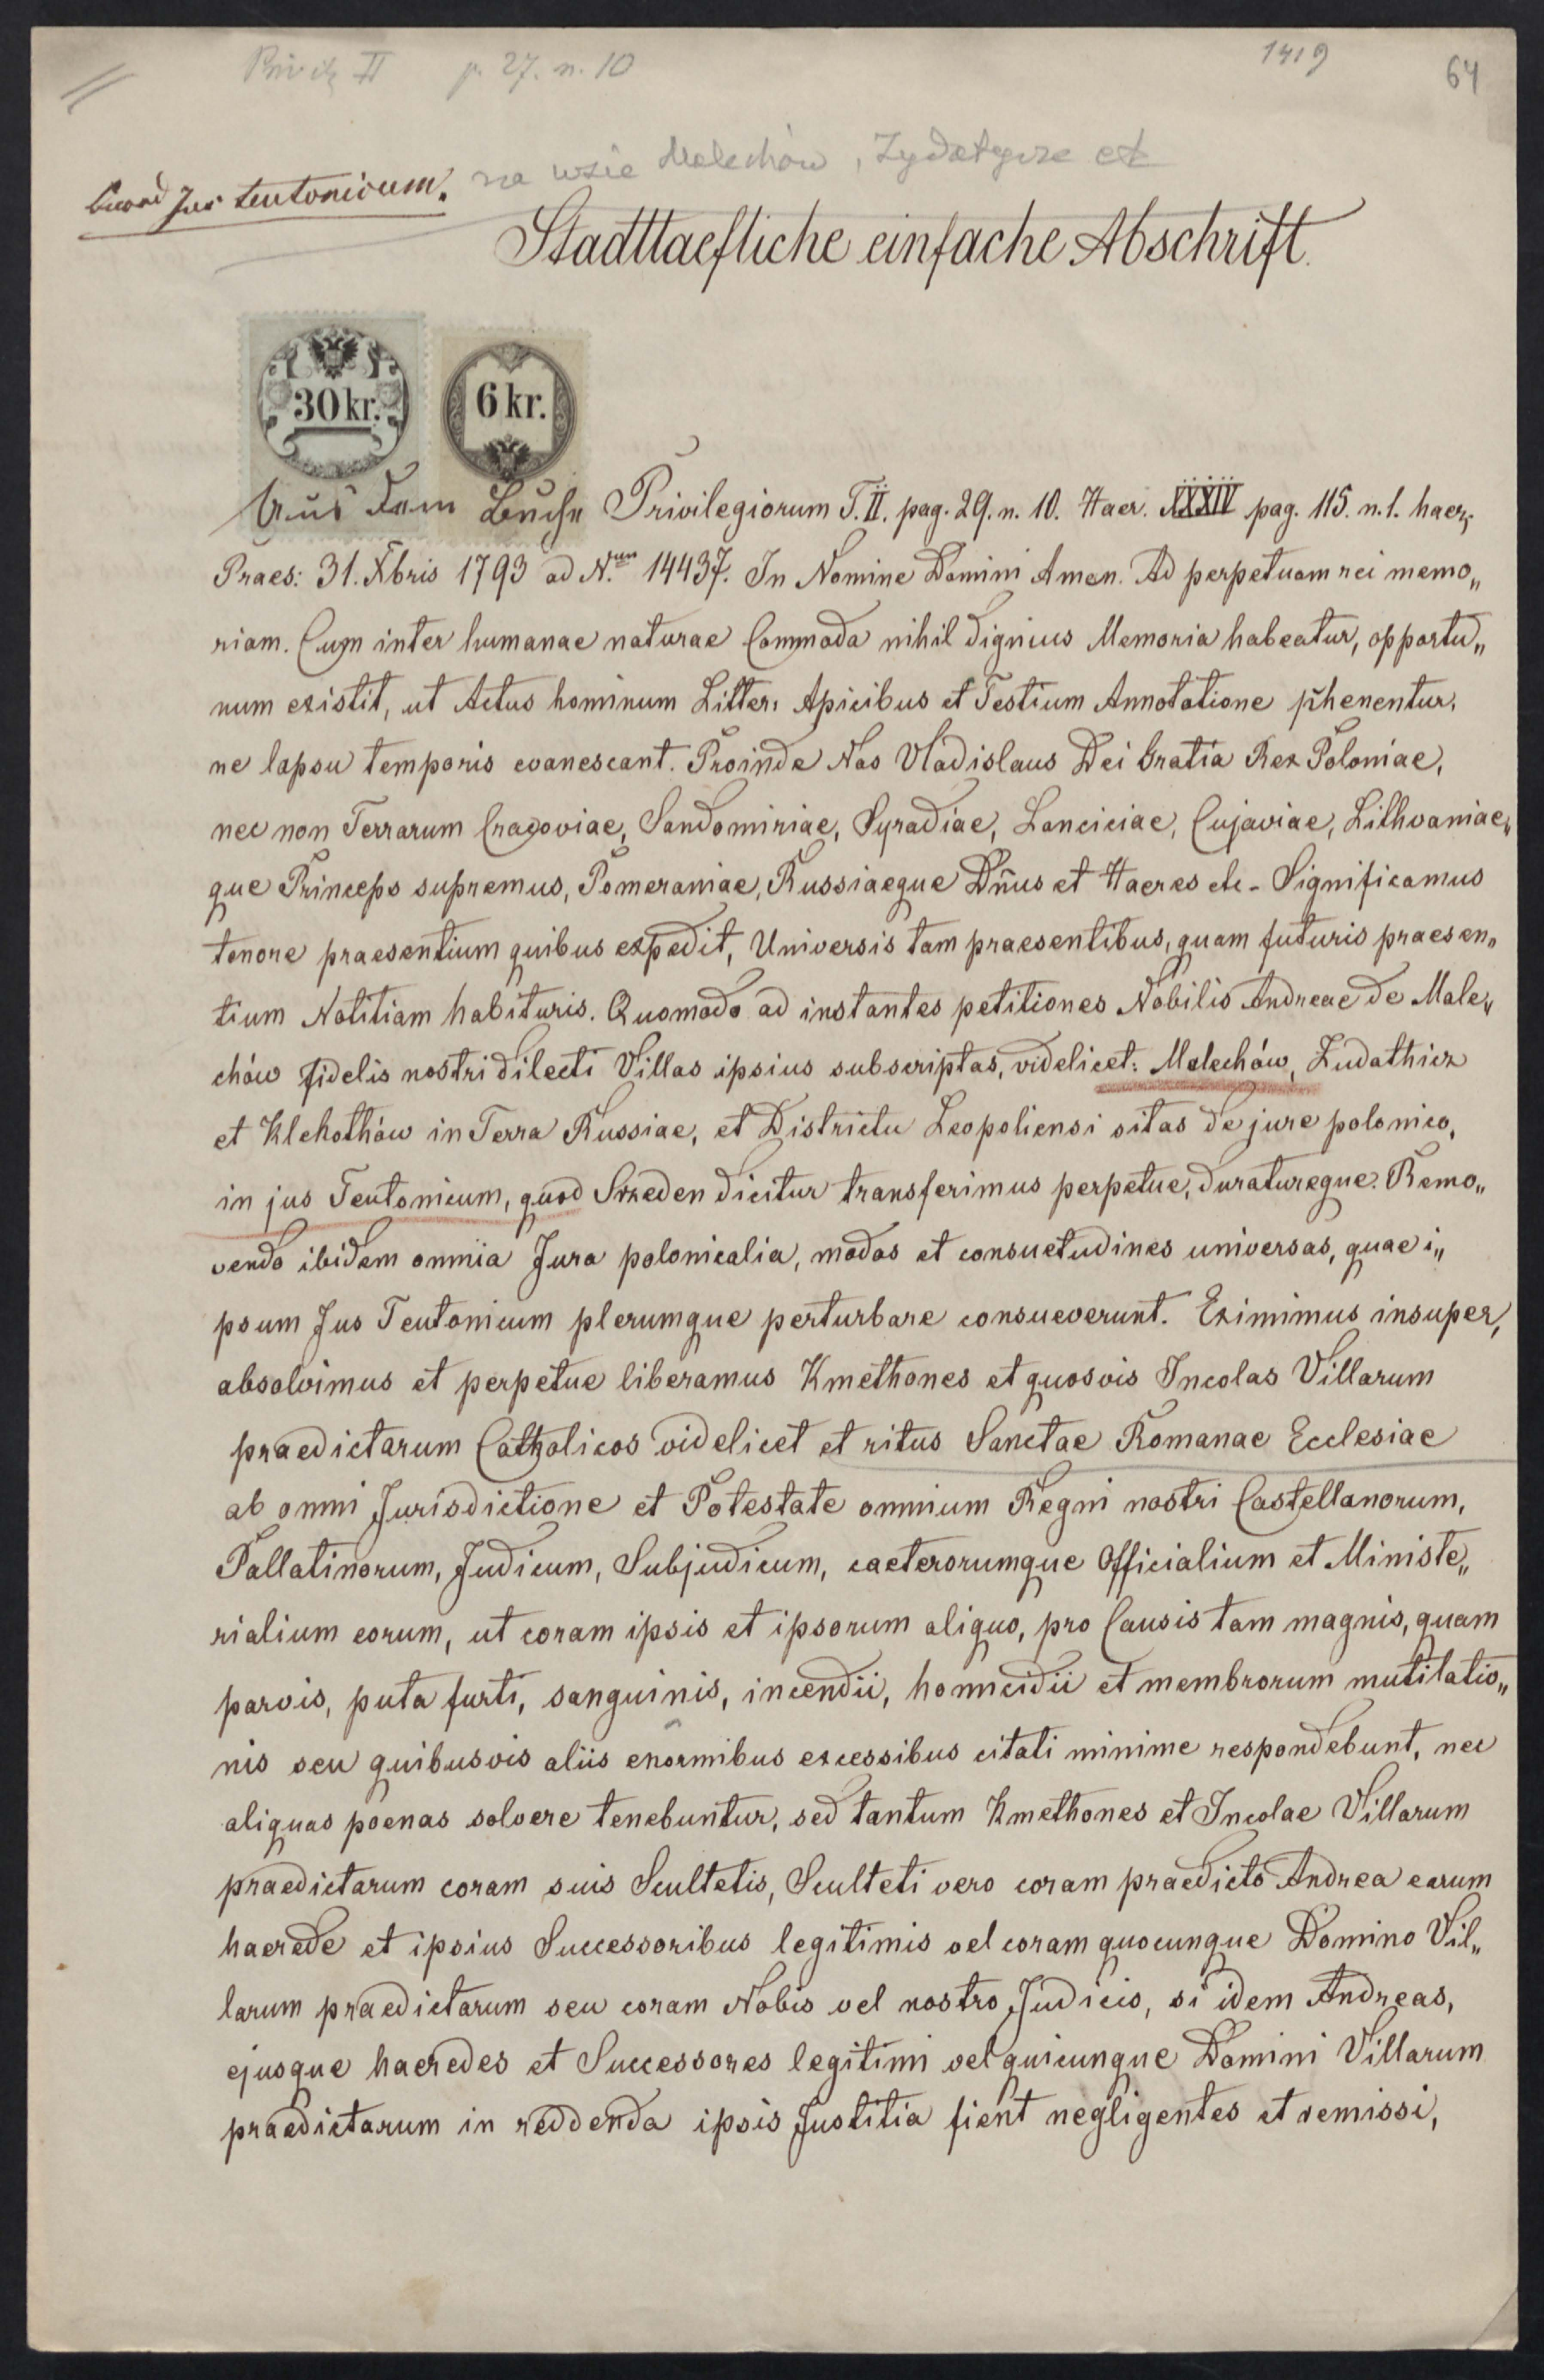 Privil. II p. 27. n. 10
1419
64
na wsie Malechów, Zydatycze et
quod Jus teutonicum.
Stadttaefliche einfache Abschrift.
30 kr.
6 kr.
Aus dem Buche Privilegiorum T. II. pag. 29. n. 10. Haer. XXXIV pag. 115. n. 1. haer.
Praes: 31. Xbris 1793 ad N.um 14437. In Nomine Domini Amen. Ad perpetuam rei memo„
riam. Cum inter humanae naturae Commoda nihil dignius Memoria habeatur, opportu„
num existit, ut Actus hominum Litter: Apicibus et Testium Annotatione phenentur,
ne lapsu temporis evanescant. Proinde Nos Vladislaus Dei Gratia Rex Poloniae,
nec non Terrarum Cracoviae, Sandomiriae, Syradiae, Lanciciae, Cujaviae, Lithvaniae„
que Princeps supremus, Pomeraniae, Russiaeque Dñus et Haeres etc - Significamus
tenore praesentium quibus expedit, Universis tam praesentibus, quam futuris praesen„
tium Notitiam habituris. Quomodo ad instantes petitiones Nobilis Andreae de Male„
chów fidelis nostri dilecti Villas ipsius subscriptas, videlicet: Malechów, Zudathicz
et Klehothów in Terra Russiae, et Districtu Leopoliensi sitas de jure polonico,
in jus Teutonicum, quod Srzeden dicitur transferimus perpetue, duratureque. Remo„
vendo ibidem omnia Jura polonicalia, modos et consuetudines universas, quae i„
psum Jus Teutonicum plerumque perturbare consueverunt. Eximimus insuper,
absolvimus et perpetue liberamus Kmethones et quosvis Incolas Villarum
praedictarum Catholicos videlicet et ritus Sanctae Romanae Ecclesiae
ab omni Jurisdictione et Potestate omnium Regni nostri Castellanorum,
Pallatinorum, Judicum, Subjudicum, caeterorumque Officialium et Ministe„
rialium eorum, ut coram ipsis et ipsorum aliquo, pro Causis tam magnis, quam
parvis, puta furti, sanguinis, incendii, homicidii et membrorum mutilatio„
nis seu quibusvis aliis enormibus excessibus citati minime respondebunt, nec
aliquas poenas solvere tenebuntur, sed tantum Kmethones et Incolae Villarum
praedictarum coram suis Scultetis, Sculteti vero coram praedicto Andrea earum
haerede et ipsius Successoribus legitimis vel coram quocunque Domino Vil„
larum praedictarum seu coram Nobis vel nostro Judicio, si idem Andreas,
ejusque haeredes et Successores legitimi vel quicunque Domini Villarum
praedictarum in reddenda ipsis Justitia fient negligentes et remissi,